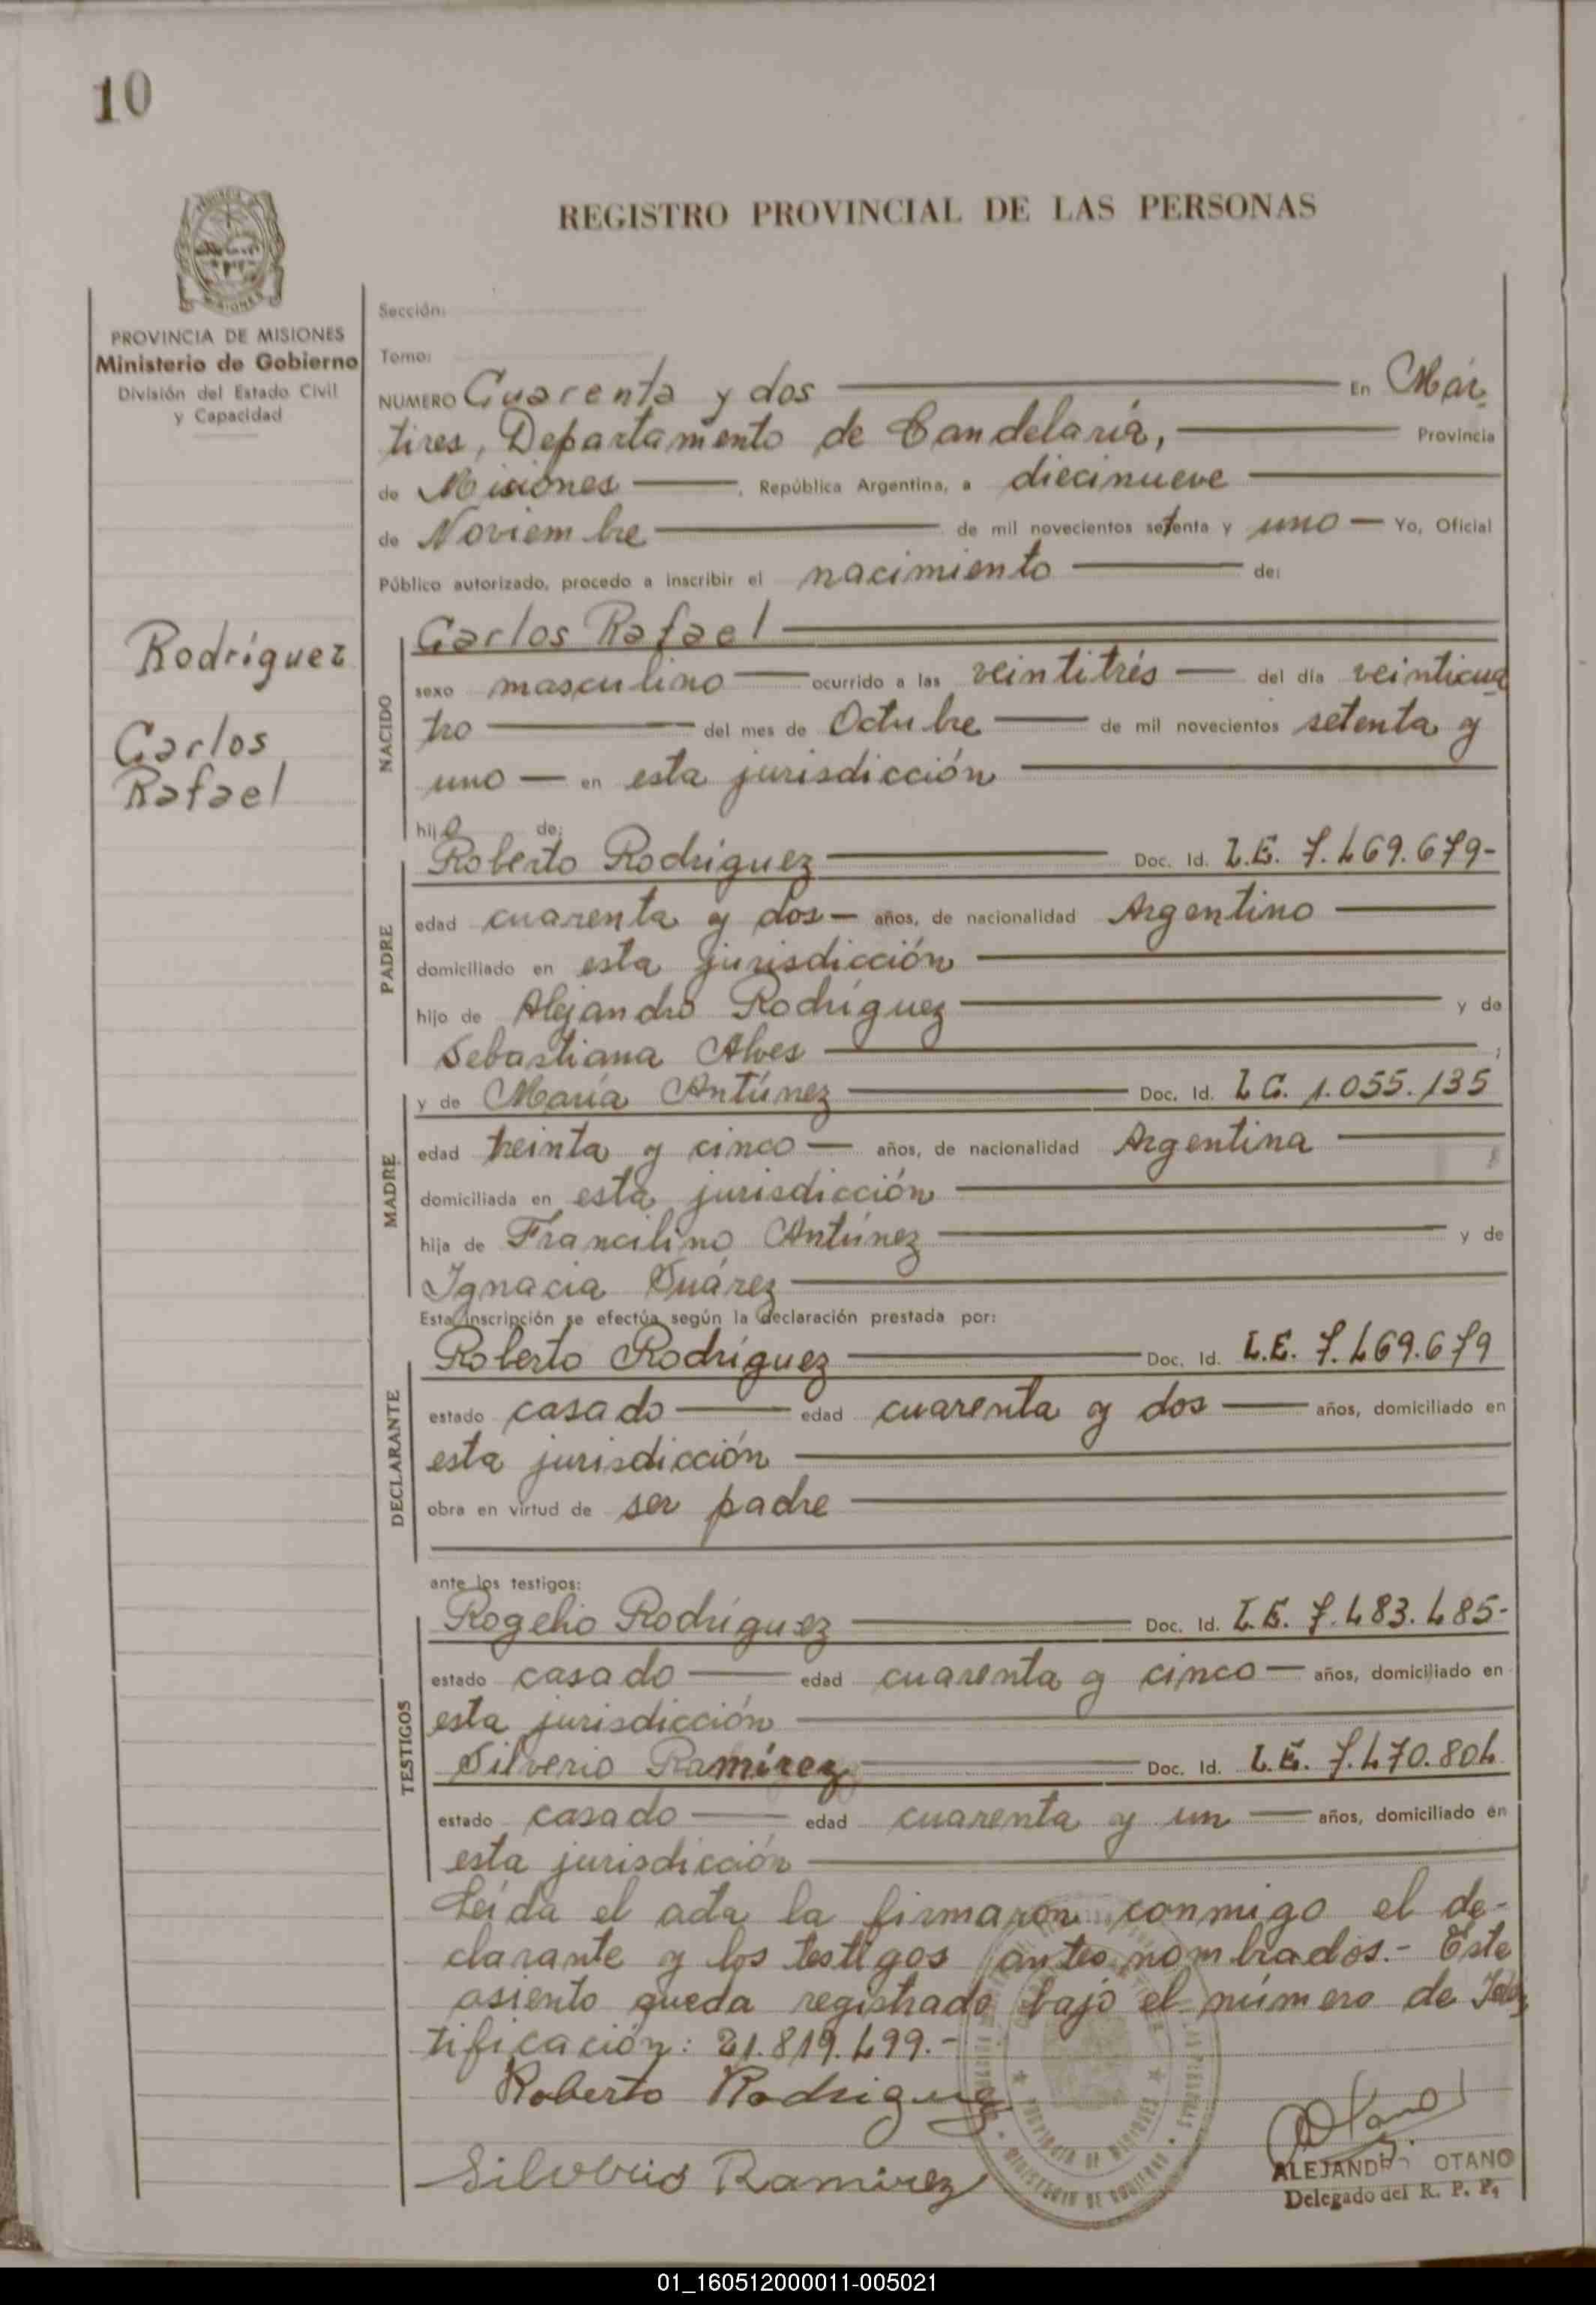 10
PROVINCIA DE MISIONES
Ministerio de Gobierno
División del Estado Civil
y Capacidad
Rodríguez
Carlos
Rafael
REGISTRO PROVINCIAL DE LAS PERSONAS
Sección:
Tomo:
NUMERO Cuarenta y dos En Már-
tires, Departamento de Candelaria, Provincia
de Misiones , República Argentina, a diecinueve
de Noviembre de mil novecientos setenta y uno Yo, Oficial
Público autorizado, procedo a inscribir el nacimiento de:
NACIDO
Carlos Rafael
sexo masculino ocurrido a las veintitrés del día veinticua
tro del mes de Octubre de mil novecientos setenta y
uno en esta jurisdicción
hijo de:
PADRE
Roberto Rodríguez Doc. Id. L.E. 7.469.679-
edad cuarenta y dos años, de nacionalidad Argentino
domiciliado en esta jurisdicción
hijo de Alejandro Rodríguez y de
Sebastiana Alves ;
MADRE
y de María Antúnez Doc. Id. L C. 1.055.135
edad treinta y cinco años, de nacionalidad Argentina
domiciliada en esta jurisdicción
hija de Francilino Antúnez y de
Ignacia Suárez
Esta inscripción se efectúa según la declaración prestada por:
DECLARANTE
Roberto Rodríguez Doc. Id. L.E. 7.469.679
estado casado edad cuarenta y dos años, domiciliado en
esta jurisdicción
obra en virtud de ser padre
ante los testigos:
TESTIGOS
Rogelio Rodríguez Doc. Id. L.E. 7.483.485-
estado casado edad cuarenta y cinco años, domiciliado en
esta jurisdicción
Silverio Ramírez Doc. Id. L.E. 7.470.804
estado casado edad cuarenta y un años, domiciliado en
esta jurisdicción
Leída el acta la firmaron conmigo el de-
clarante y los testigos antes nombrados.- Este
asiento queda registrado bajo el número de Iden
tificación: 21.819.499.-
Roberto Rodriguez
Silverio Ramirez
ALEJANDRO OTANO
Delegado del R. P. P.
PROVINCIA DE MISIONES
MINISTERIO DE GOBIERNO
01_160512000011-005021